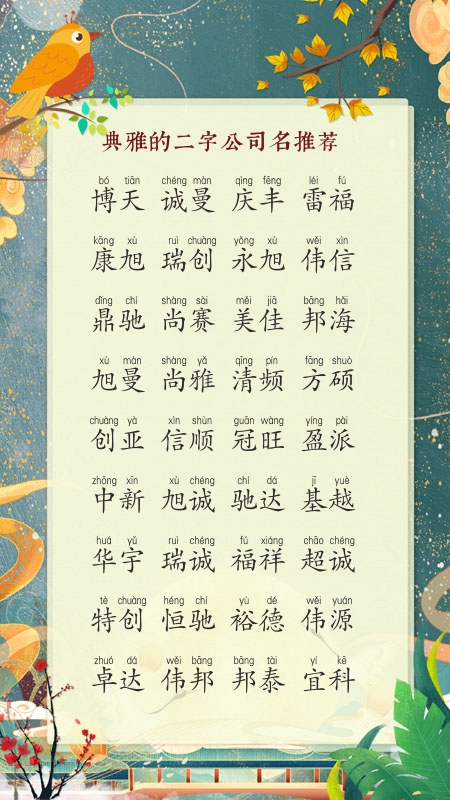 典雅的二字公司名推荐
bó tiān chéng màn qìng fēng léi fú
博天 诚曼 庆丰 雷福
kāng xù ruì chuàng yǒng xù wěi xìn
康旭 瑞创 永旭 伟信
dǐng chí shàng sài měi jiā bāng hǎi
鼎驰 尚赛 美佳 邦海
xù màn shàng yǎ qīng pín fāng shuò
旭曼 尚雅 清频 方硕
chuàng yà xìn shùn guān wàng yíng pài
创亚 信顺 冠旺 盈派
zhōng xīn xù chéng chí dá jī yuè
中新 旭诚 驰达 基越
huá yǔ ruì chéng fú xiáng chāo chéng
华宇 瑞诚 福祥 超诚
tè chuàng héng chí yù dé wěi yuán
特创 恒驰 裕德 伟源
zhuó dá wěi bāng bāng tài yí kē
卓达 伟邦 邦泰 宜科